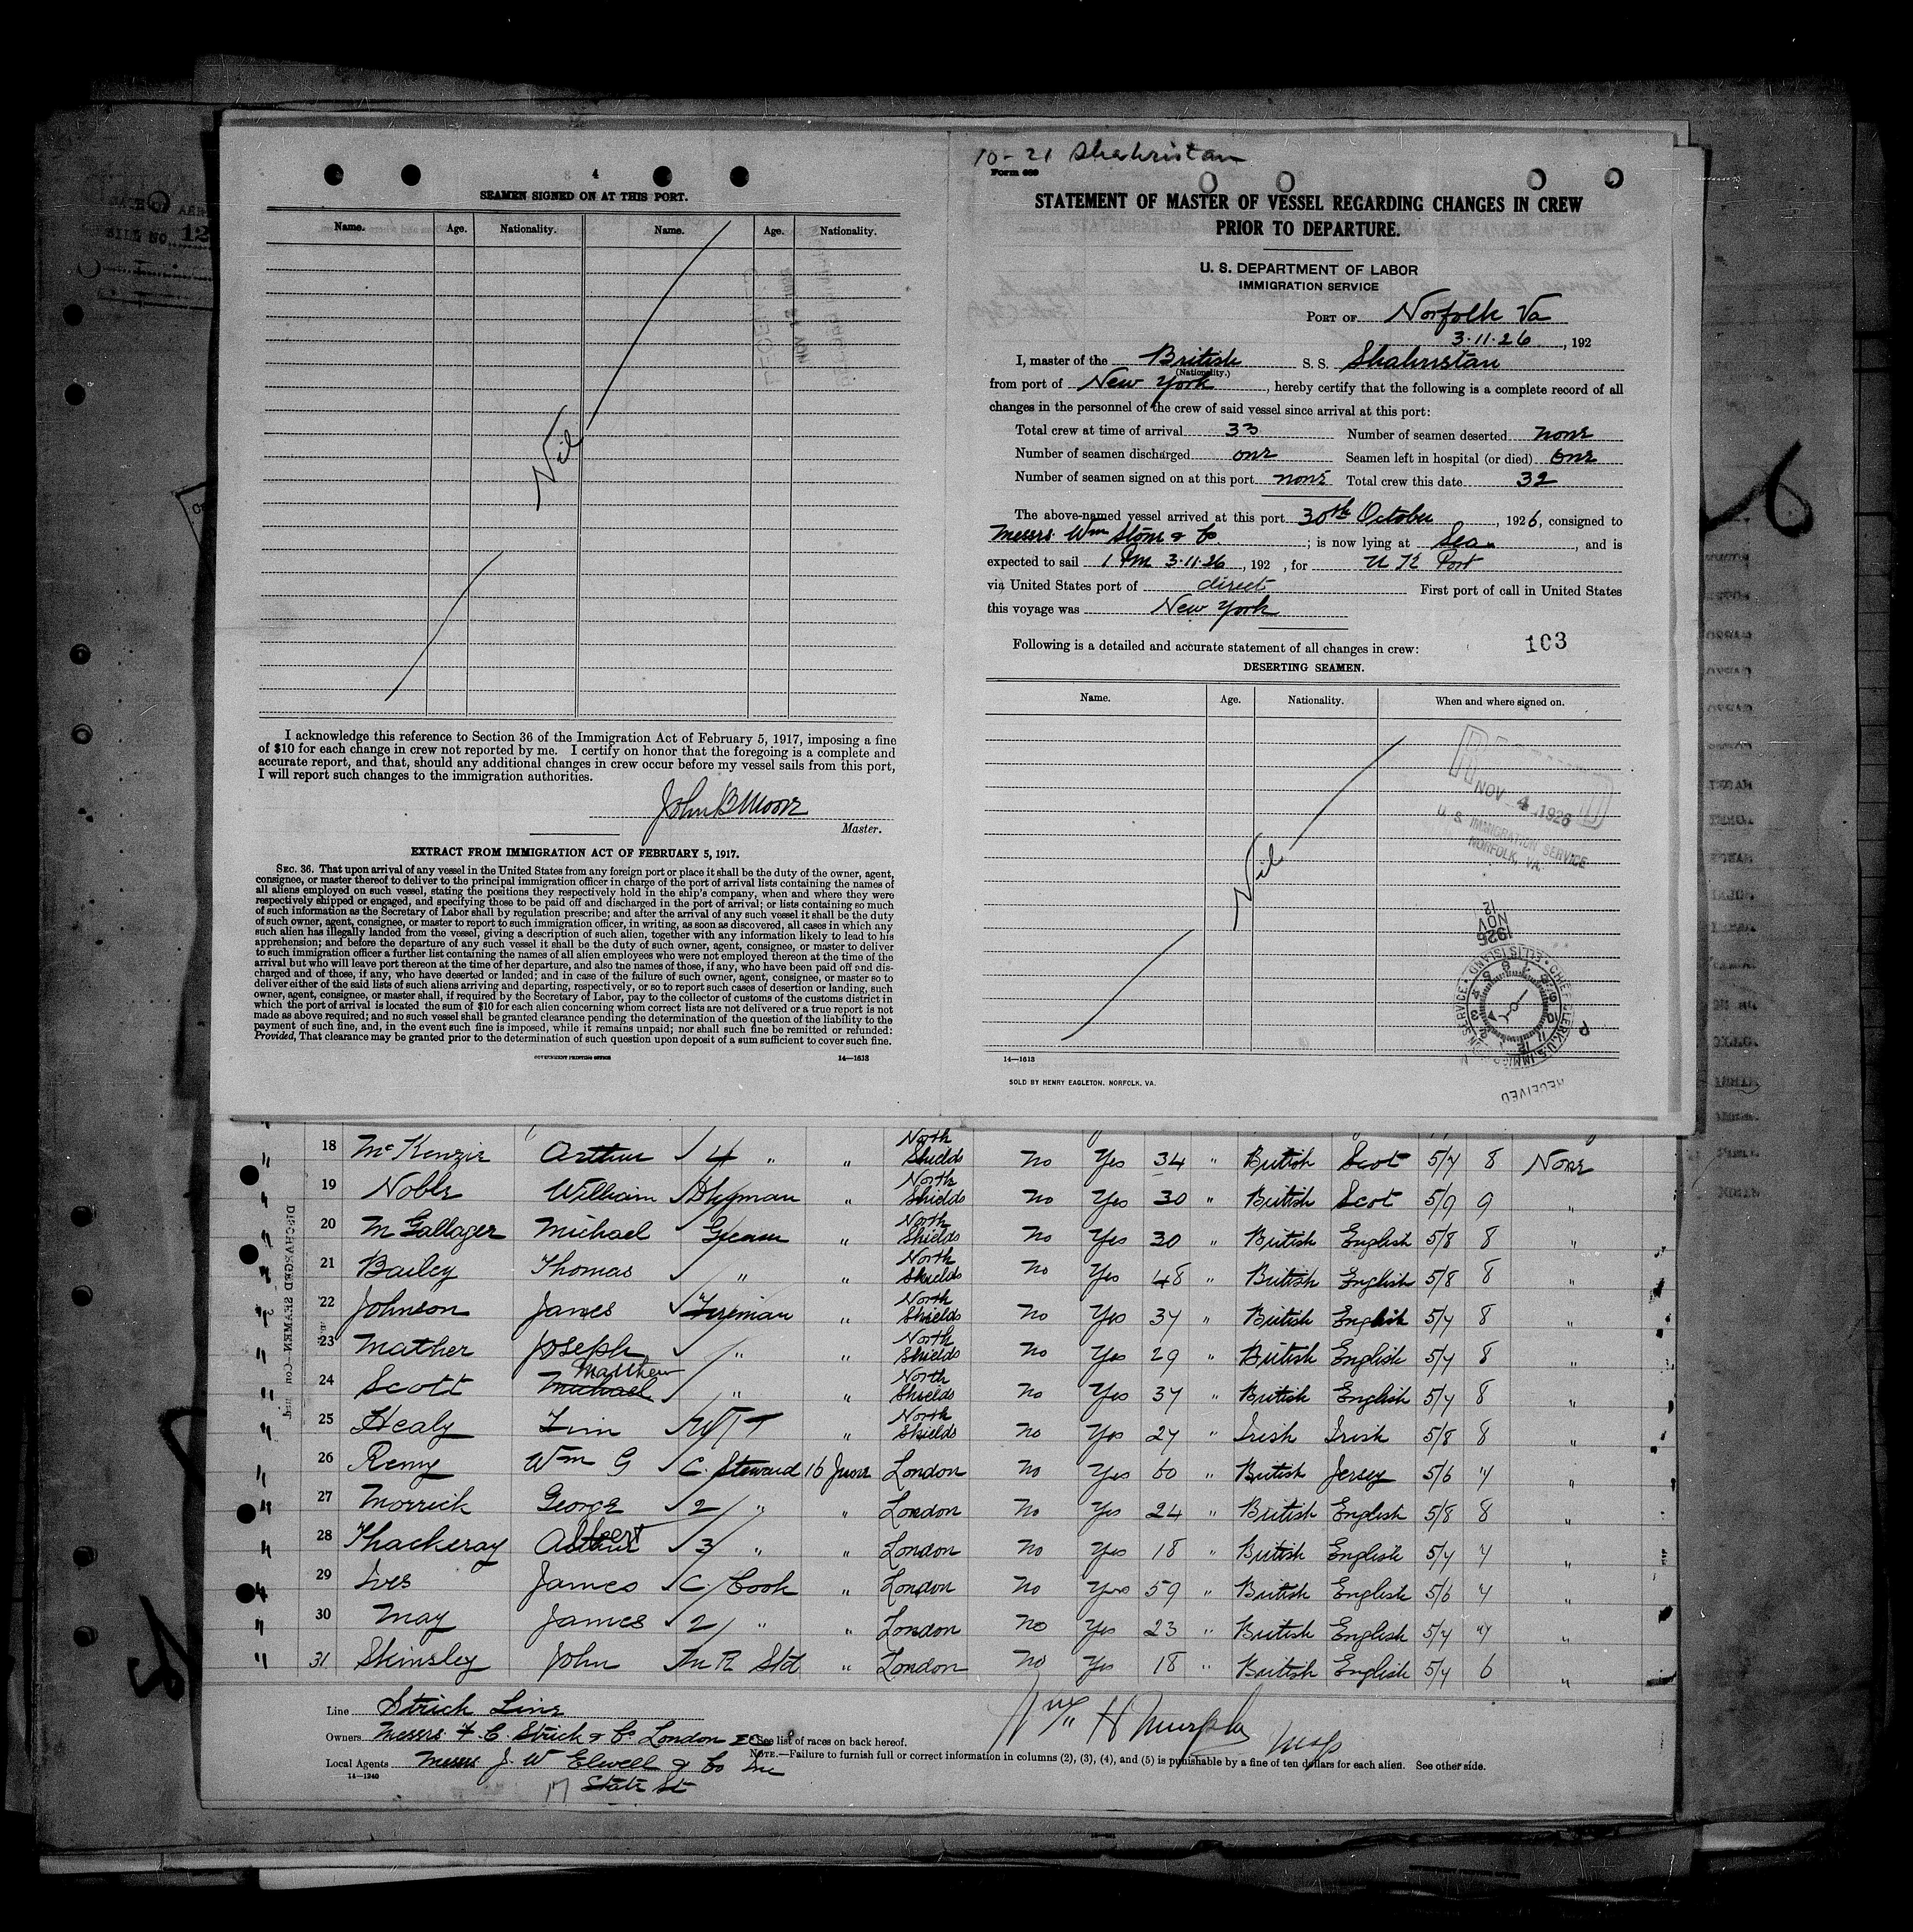 4
SEAMEN SIGNED ON AT THIS PORT.
Name. Age. Nationality. Name. Age. Nationality.
Nil
I acknowledge this reference to Section 36 of the Immigration Act of February 5, 1917, imposing a fine
of $10 for each change in crew not reported by me. I certify on honor that the foregoing is a complete and
accurate report, and that, should any additional changes in crew occur before my vessel sails from this port,
I will report such changes to the immigration authorities.
John B Moore
Master.
EXTRACT FROM IMMIGRATION ACT OF FEBRUARY 5, 1917.
SEC. 36. That upon arrival of any vessel in the United States from any foreign port or place it shall be the duty of the owner, agent,
consignee, or master thereof to deliver to the principal immigration officer in charge of the port of arrival lists containing the names of
all aliens employed on such vessel, stating the positions they respectively hold in the ship's company, when and where they were
respectively shipped or engaged, and specifying those to be paid off and discharged in the port of arrival; or lists containing so much
of such information as the Secretary of Labor shall by regulation prescribe; and after the arrival of any such vessel it shall be the duty
of such owner, agent, consignee, or master to report to such immigration officer, in writing, as soon as discovered, all cases in which any
such alien has illegally landed from the vessel, giving a description of such alien, together with any information likely to lead to his
apprehension; and before the departure of any such vessel it shall be the duty of such owner, agent, consignee, or master to deliver
to such immigration officer a further list containing the names of all alien employees who were not employed thereon at the time of the
arrival but who will leave port thereon at the time of her departure, and also the names of those, if any, who have been paid off and dis-
charged and of those, if any, who have deserted or landed; and in case of the failure of such owner, agent, consignee, or master so to
deliver either of the said lists of such aliens arriving and departing, respectively, or so to report such cases of desertion or landing, such
owner, agent, consignee, or master shall, if required by the Secretary of Labor, pay to the collector of customs of the customs district in
which the port of arrival is located the sum of $10 for each alien concerning whom correct lists are not delivered or a true report is not
made as above required; and no such vessel shall be granted clearance pending the determination of the question of the liability to the
payment of such fine, and, in the event such fine is imposed, while it remains unpaid; nor shall such fine be remitted or refunded:
Provided, That clearance may be granted prior to the determination of such question upon deposit of a sum sufficient to cover such fine.
GOVERNMENT PRINTING OFFICE 14—1613
10-21 Shahristan
Form 689
STATEMENT OF MASTER OF VESSEL REGARDING CHANGES IN CREW
PRIOR TO DEPARTURE.
U. S. DEPARTMENT OF LABOR
IMMIGRATION SERVICE
PORT OF Norfolk Va
3.11.26, 192
I, master of the British S. S. Shahristan
(Nationality.)
from port of New York, hereby certify that the following is a complete record of all
changes in the personnel of the crew of said vessel since arrival at this port:
Total crew at time of arrival 33 Number of seamen deserted none
Number of seamen discharged one Seamen left in hospital (or died) one
Number of seamen signed on at this port none Total crew this date 32
The above-named vessel arrived at this port 30th October, 1926, consigned to
Messrs. Wm Stone & Co ; is now lying at Sea, and is
expected to sail 1 Pm 3.11.26, 192 , for U K Port
via United States port of direct First port of call in United States
this voyage was New York
103
Following is a detailed and accurate statement of all changes in crew:
DESERTING SEAMEN.
Name. Age. Nationality. When and where signed on.
NOV 4 1926
U. S IMMIGRATION SERVICE
NORFOLK, VA.
Nil
12
NOV
1926
RECEIVED
14—1613
SOLD BY HENRY EAGLETON, NORFOLK, VA.
DISCHARGED SEAMEN
18 McKenzie Arthur 4 " " North Shields No Yes 34 " British Scot 5/7 8 None
19 Noble William Dkyman " North Shields No Yes 30 " British Scot 5/9 9 "
20 McGallager Michael Greaser " North Shields No Yes 30 " British English 5/8 8 "
21 Bailey Thomas " " North Shields No Yes 48 " British English 5/8 8 "
22 Johnson James Fireman " North Shields No Yes 37 " British English 5/7 8 "
23 Mather Joseph " " North Shields No Yes 29 " British English 5/7 8 "
24 Scott Michael Matthew " " North Shields No Yes 37 " British English 5/7 8 "
25 Healy Tim " North Shields No Yes 27 " Irish Irish 5/8 8 "
26 Remy Wm G C. Steward 16 June London No Yes 60 " British Jersey 5/6 7 "
27 Morrick George 2 " " London No Yes 24 " British English 5/8 8 "
28 Thackeray Albert 3 " " London No Yes 18 " British English 5/7 7 "
29 Ives James C. Cook " London No Yes 59 " British English 5/6 7 "
30 May James 2 " " London No Yes 23 " British English 5/7 7 "
31 Skinsley John M R Std " London No Yes 18 " British English 5/7 6 "
Line Strick Line
Owners Messrs F. C. Strick & Co London EC
See list of races on back hereof.
NOTE.—Failure to furnish full or correct information in columns (2), (3), (4), and (5) is punishable by a fine of ten dollars for each alien. See other side.
Local Agents Messrs J. W Elwell & Co Inc
14—1240
17 State St
H Murphy